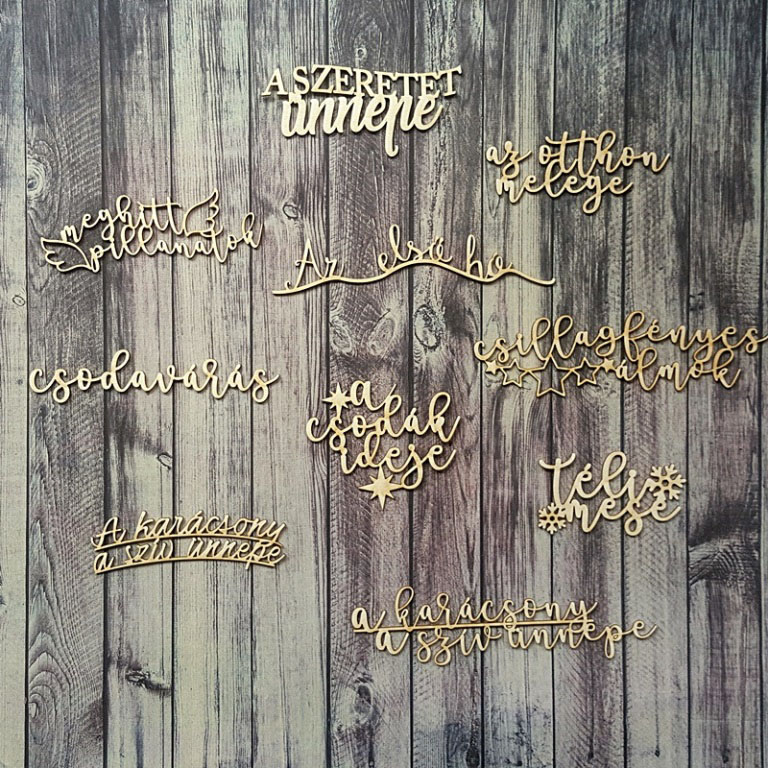 A SZERETET
ünnepe
az otthon
melege
meghitt
pillanatok
Az első hó
csillagfényes
álmok
csodavárás
a
csodák
ideje
Téli
mese
A karácsony
a szív ünnepe
a karácsony
a szív ünnepe